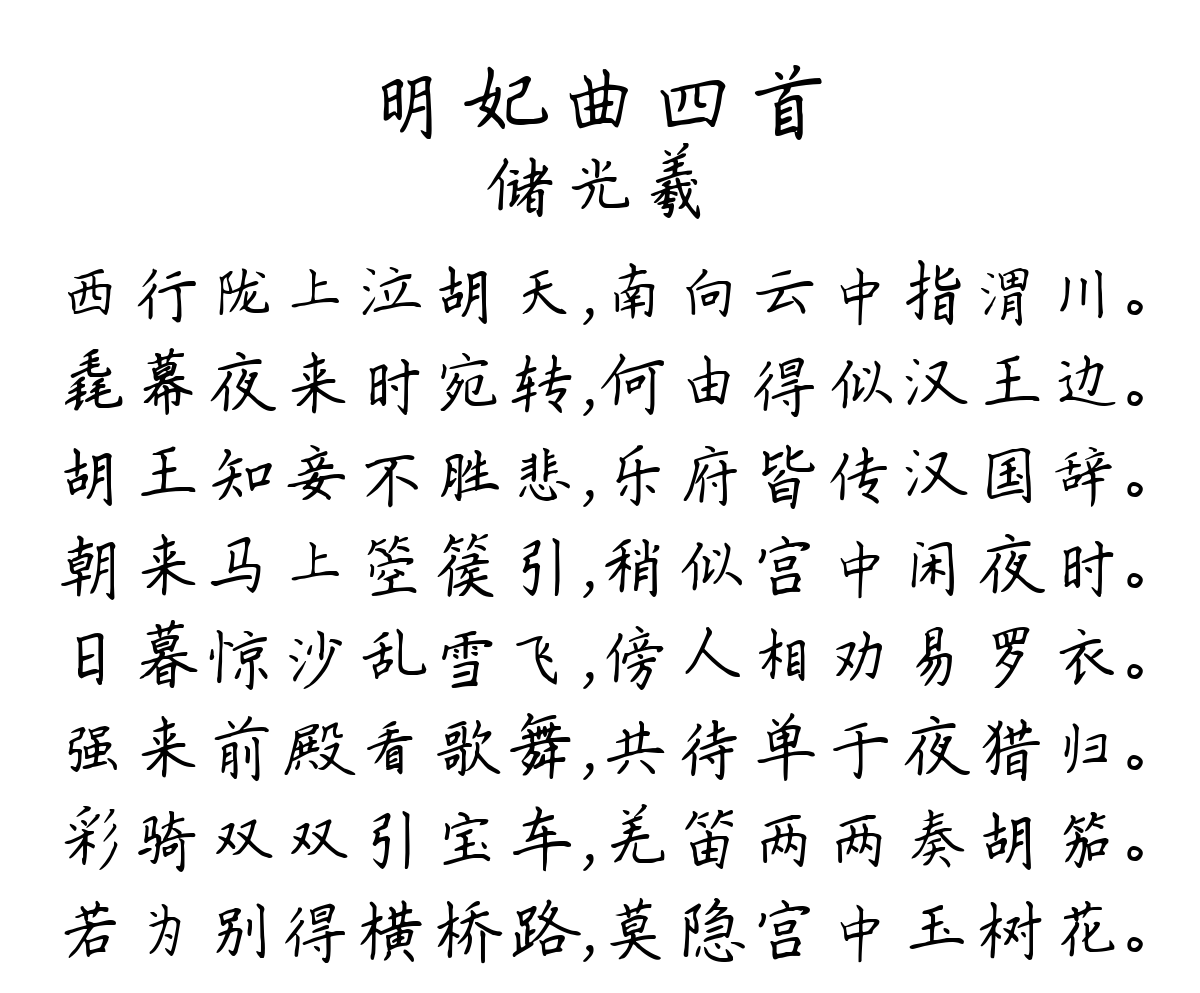 明妃曲四首
储光羲
西行陇上泣胡天,南向云中指渭川。
毳幕夜来时宛转,何由得似汉王边。
胡王知妾不胜悲,乐府皆传汉国辞。
朝来马上箜篌引,稍似宫中闲夜时。
日暮惊沙乱雪飞,傍人相劝易罗衣。
强来前殿看歌舞,共待单于夜猎归。
彩骑双双引宝车,羌笛两两奏胡笳。
若为别得横桥路,莫隐宫中玉树花。